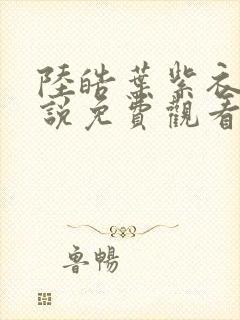 陸皓葉紫衣
說免費觀看
魯暢